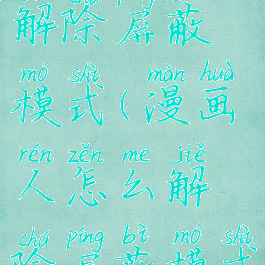 解除屏蔽
mó shì màn huà
模式（漫画
rén zěn me jiě
人怎么解
chú píng bì mó shì
除屏蔽模式